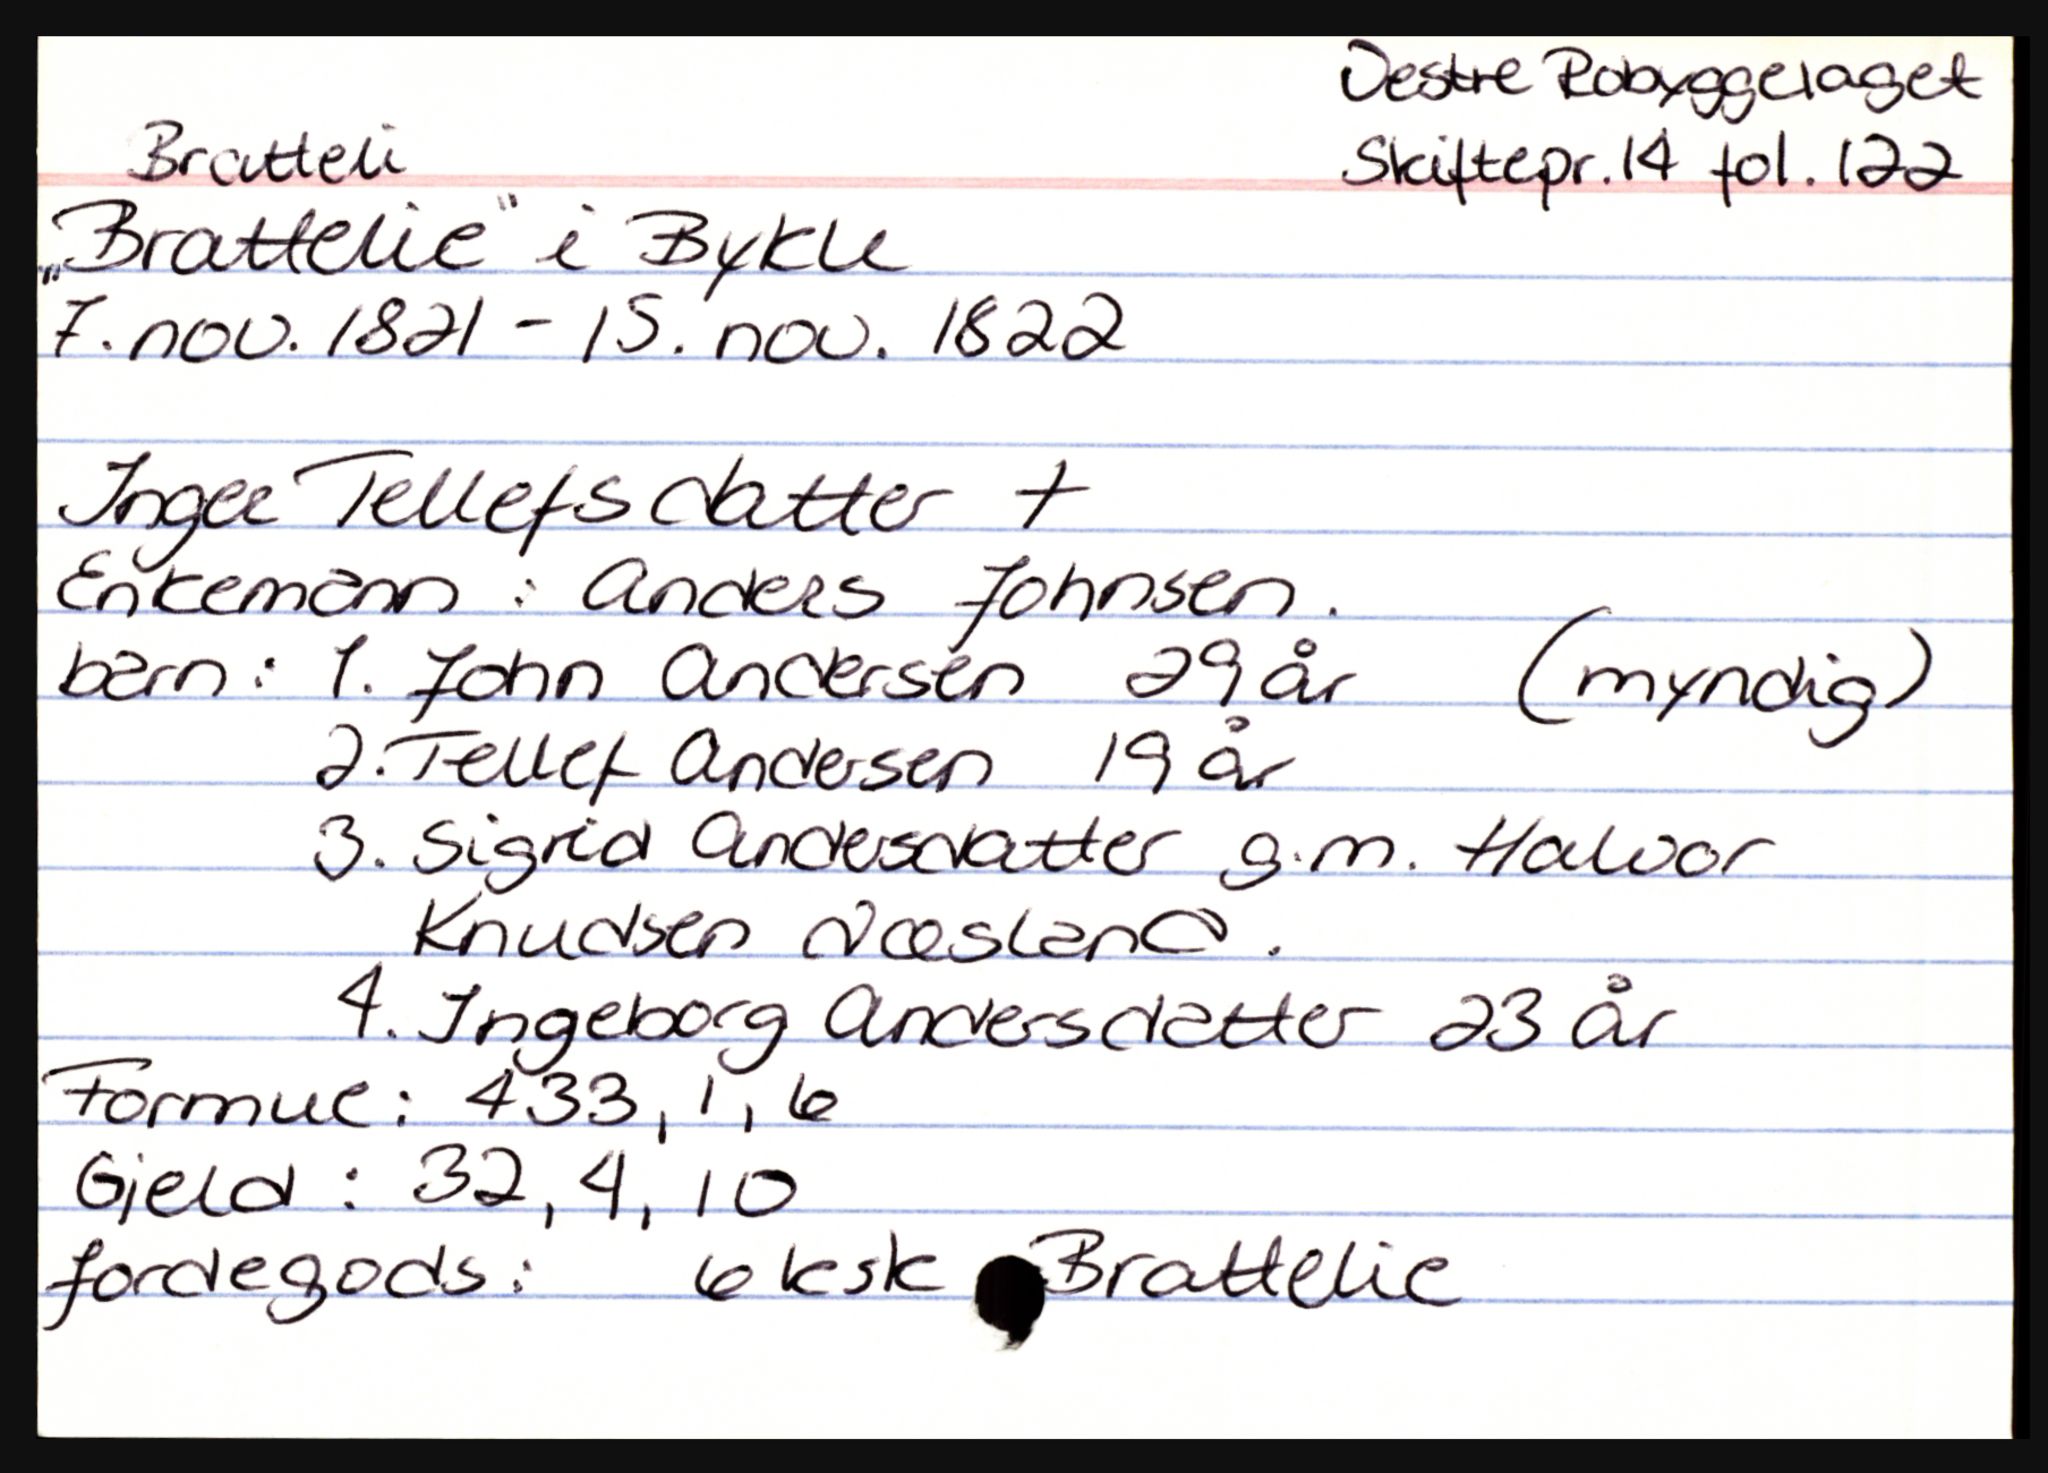 Vestre Robyggelaget
Skiftepr. 14 fol. 122
Bratteli
„Brattelie" i Bykle
7. nov. 1821 - 15. nov. 1822
Ingee Tellefsdatter +
Enkemann : Anders Johnsen.
barn: 1. John Andersen 29 år (myndig)
2. Tellef Andersen 19 år
3. Sigrid Andersdatter g.m. Halvor
Knudsen Næsland.
4. Ingeborg Andersdatter 23 år
Formue: 433, 1, 6
Gjeld : 32, 4, 10
jordegods: 6 ksk Brattelie